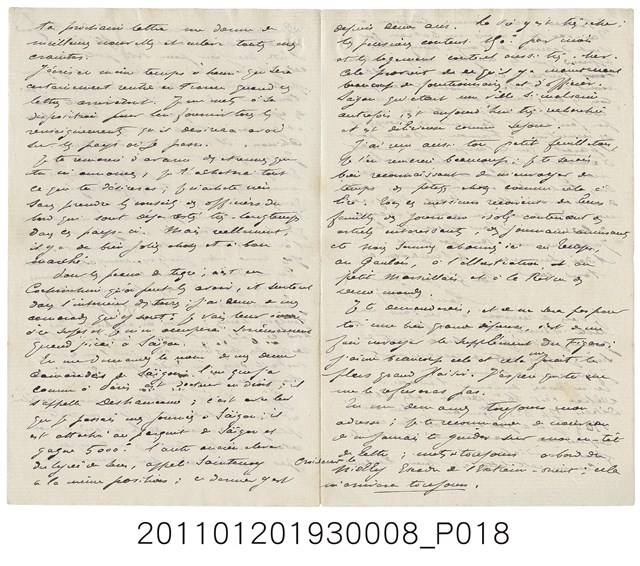 ta prochaine lettre me donne de
meilleures nouvelles et enlève toutes mes
craintes.
J'écris en même temps à henri qui sera
certainement rentré en France quand ces
lettres arrivront. Je me mets à sa
disposition pour lui fournir tous les
renseignements qu'il désirera avoir
sur les pays où je passe.
Je te remercie d'avance des
tu m'annonces, je t'achèterai tout
ce que tu désireras; je n'achète rien
sans prendre les conseils des officiers du
bord qui sont déjà restés très longtemps
dans ces pays-ci. Mais réellement,
il y a de bien jolies choses et à bon
marché.
Pour les peaux de tigre, c'est en
Cochinchine qu'on peut les avoir, et surtout
dans l'intérieur des terres; j'ai deux de mes
camarades qui y sont; je vais leur
à ce sujet et je m'en occuperai sérieusement
quand j'irai à Saïgon.
Tu me demandes le nom de mes deux
camarades de Saïgon; l'un que j'ai
connu à Paris est docteur en droit; il
s'appelle Deschamps; c'est avec lui
que je passais mes journées à Saïgon; il
est attaché au parquet de Saïgon et
gagne 5000 f. l'autre ancien élève
du lycée de
a la même position; ce dernier y est
depuis deux ans. La vie y est très chère;
les pensions coûtent par mois
et les logements coûtent aussi très cher.
Cela provient de ce qu'il y a maintenant
beaucoup de fonctionnaires et d'officiers.
Saïgon qui était une ville si malsaine
autrefois, est aujourd'hui très recherchée
et est délicieuse comme séjour.
J'ai reçu aussi ton petit feuilleton,
je t'en remercie beaucoup; je te serai
bien reconnaissant de m'envoyer de
temps en petites choses comme cela à
lire. Tous ces messieurs reçoivent de leurs
familles des journaux isolés contenant des
articles intéressants, des journaux amusants
et nous sommes abonnés ici au Temps,
au Gaulois, à l'Illustration et au
petit Marseillais et à la Revue des
deux mondes.
Je te demanderai, et ce ne sera pas pour
toi une bien grande dépense, c'est de me
faire envoyer le supplément du Figaro;
j'aime beaucoup cela et cela me ferait le
plus grand plaisir. J'espère que tu ne
me le refuseras pas.
Tu me demandes toujours mon
adresse; je te recommande de nouveau
de
de lettre; mets toujours à bord du
Croiseur le
division de l'Extrême-orient; cela
m'arrivera toujours.
201101201930008_P018